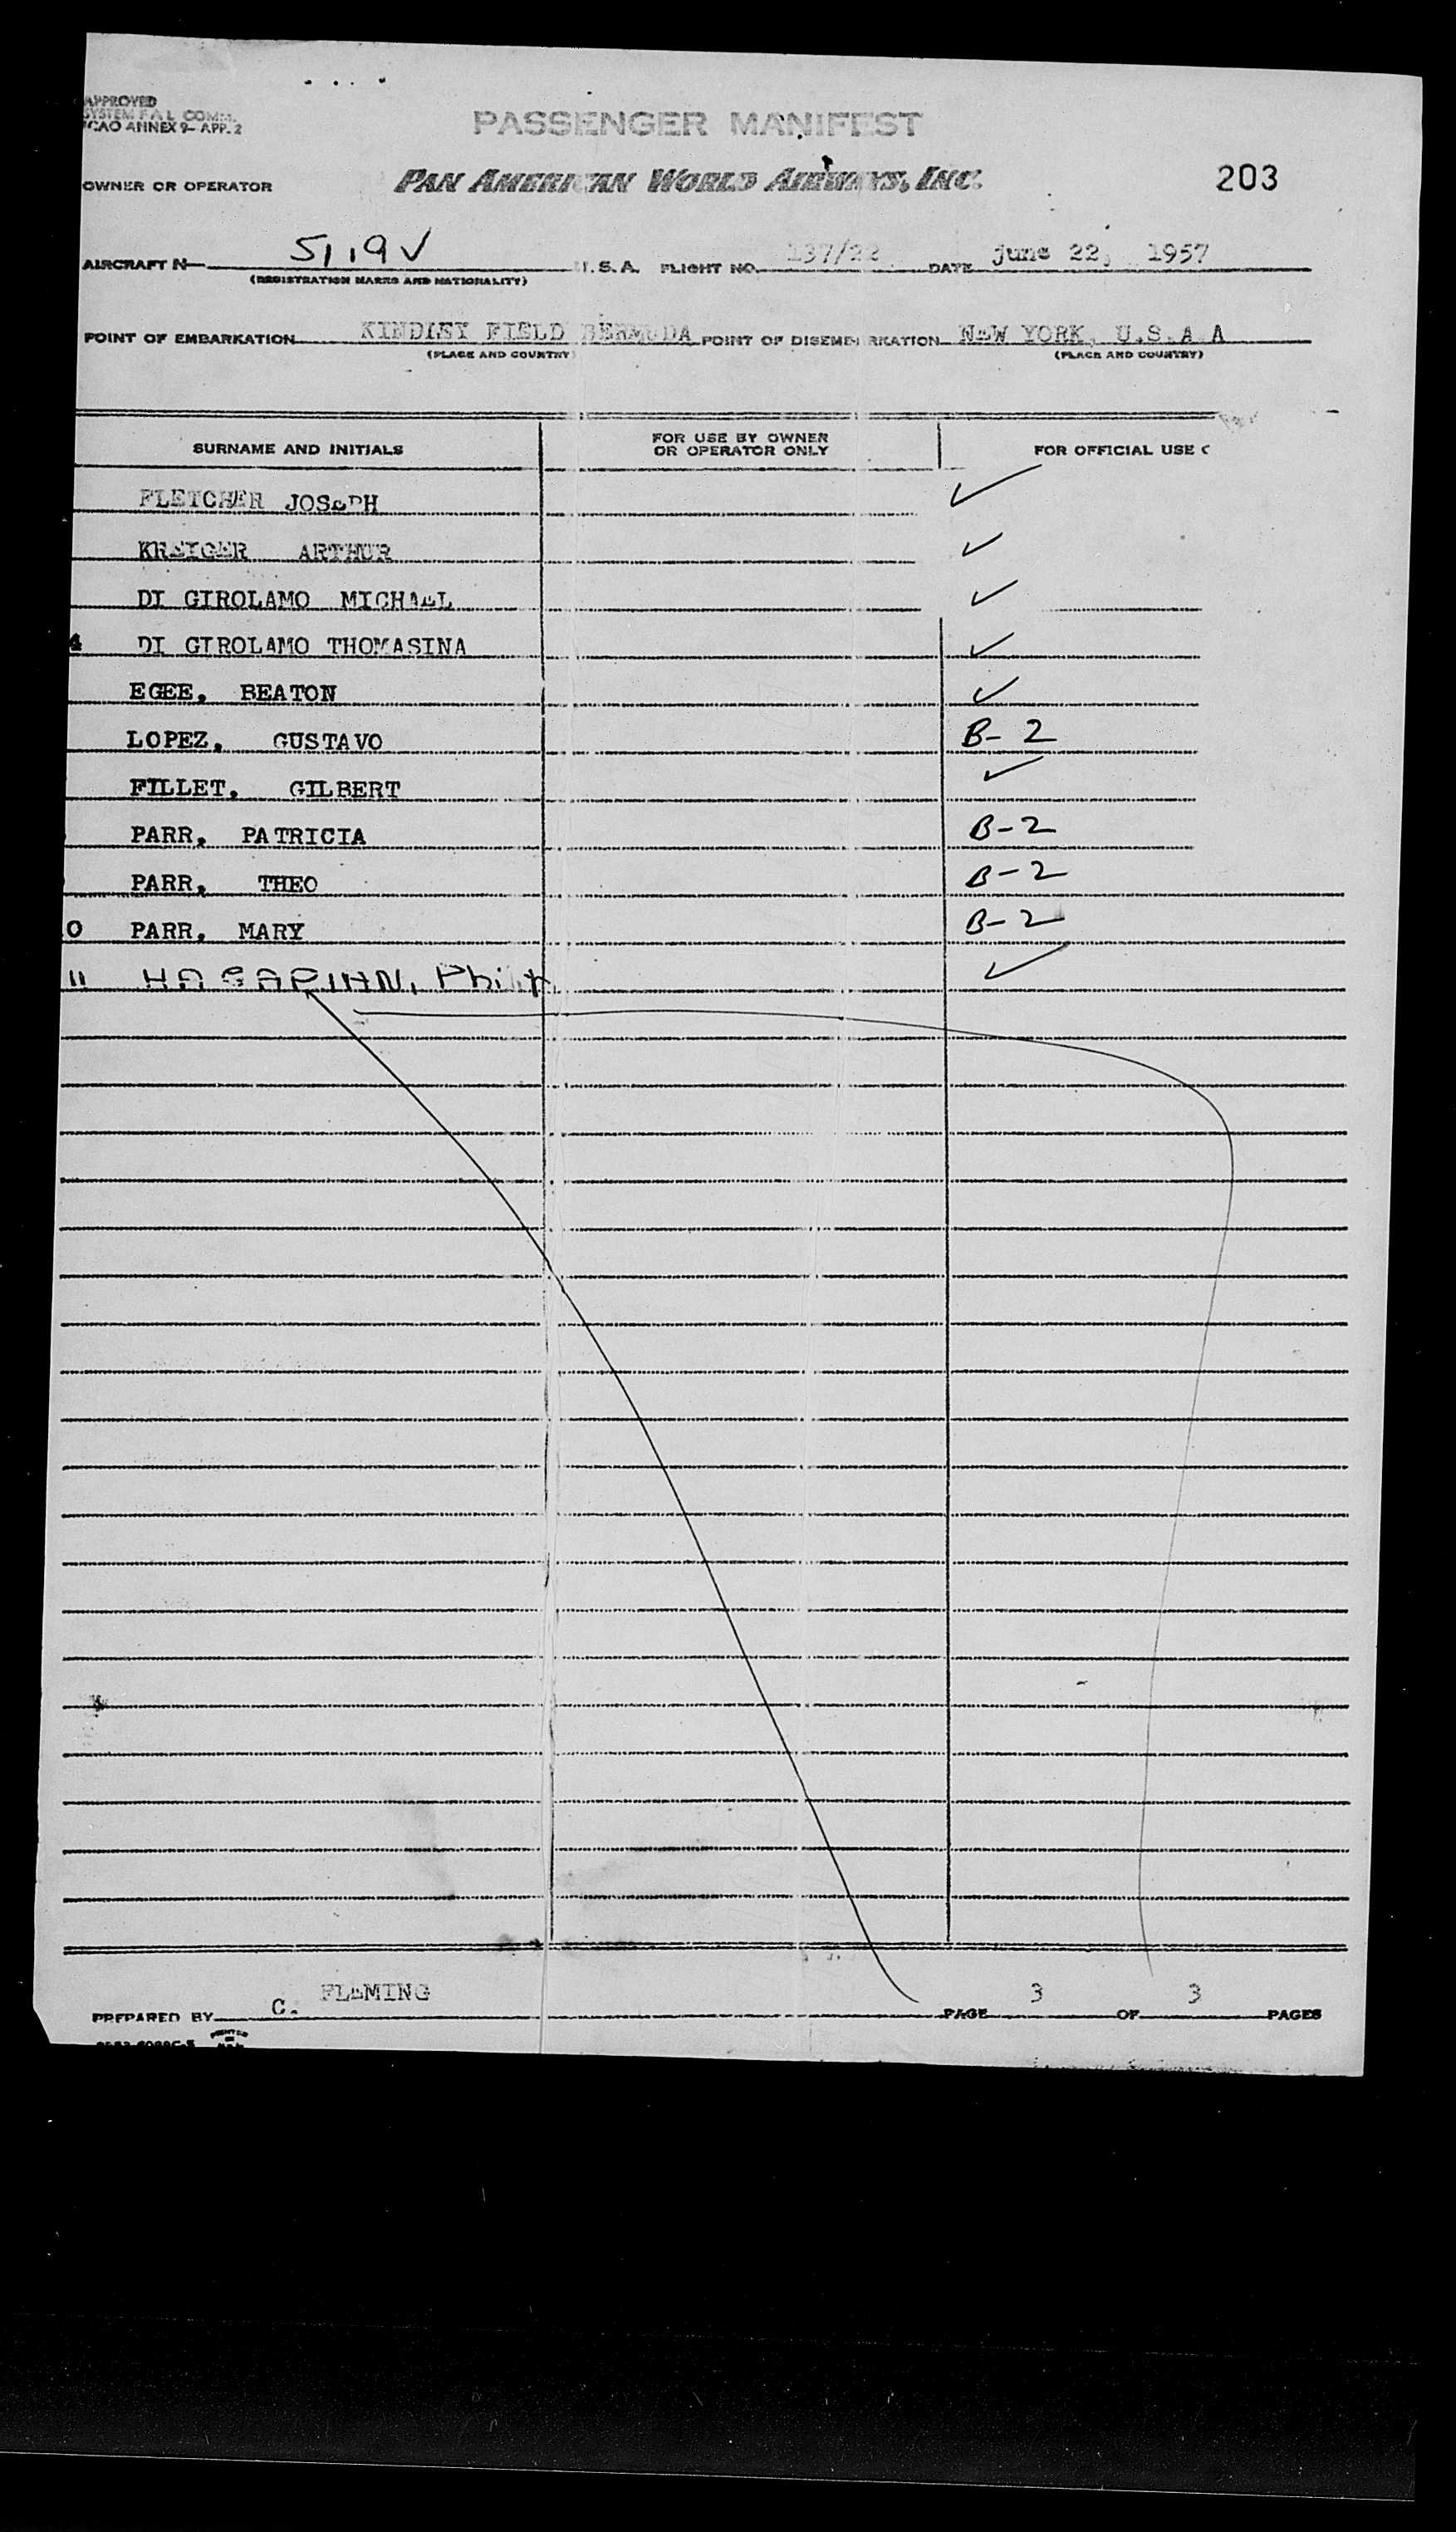 APPROVED
SYSTEM F A L COMM.
ICAO ANNEX 9- APP. 2
PASSENGER MANIFEST
OWNER OR OPERATOR PAN AMERICAN WORLD AIRWAYS, INC. 203
AIRCRAFT N 5119V U.S.A. FLIGHT NO. 137/22 DATE june 22, 1957
(REGISTRATION MARKS AND NATIONALITY)
POINT OF EMBARKATION KINDLEY FIELD BERMUDA POINT OF DISEMBARKATION NEW YORK, U.S.A A
(PLACE AND COUNTRY) (PLACE AND COUNTRY)
SURNAME AND INITIALS FOR USE BY OWNER OR OPERATOR ONLY FOR OFFICIAL USE
FLETCHER JOSEPH ✓
KREIGER ARTHUR ✓
DI GIROLAMO MICHAEL ✓
4 DI GIROLAMO THOMASINA ✓
EGEE, BEATON ✓
LOPEZ, GUSTAVO B-2
FILLET, GILBERT ✓
PARR, PATRICIA B-2
PARR, THEO B-2
0 PARR, MARY B-2
11 HAGAPIAN, Philip ✓
PREPARED BY C. FLEMING PAGE 3 OF 3 PAGES